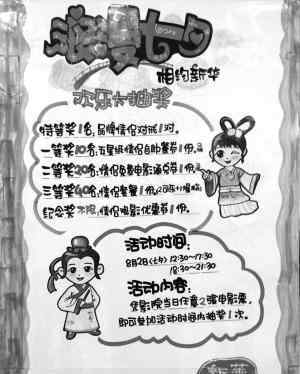 浪漫七夕
相约新华
欢乐大抽奖
特等奖1名，品牌情侣对戒1对。
一等奖10名：五星级情侣自助餐券1份。
二等奖20名：情侣免费电影通兑券1份。
三等奖40名：情侣套餐1份。
纪念奖不限，情侣电影优惠券1份。
活动时间：
8月2日(七夕) 12:30~17:30
18:30~21:30
活动内容：
凭影院当日任意2张电影票，
即可参加活动时间内抽奖1次。